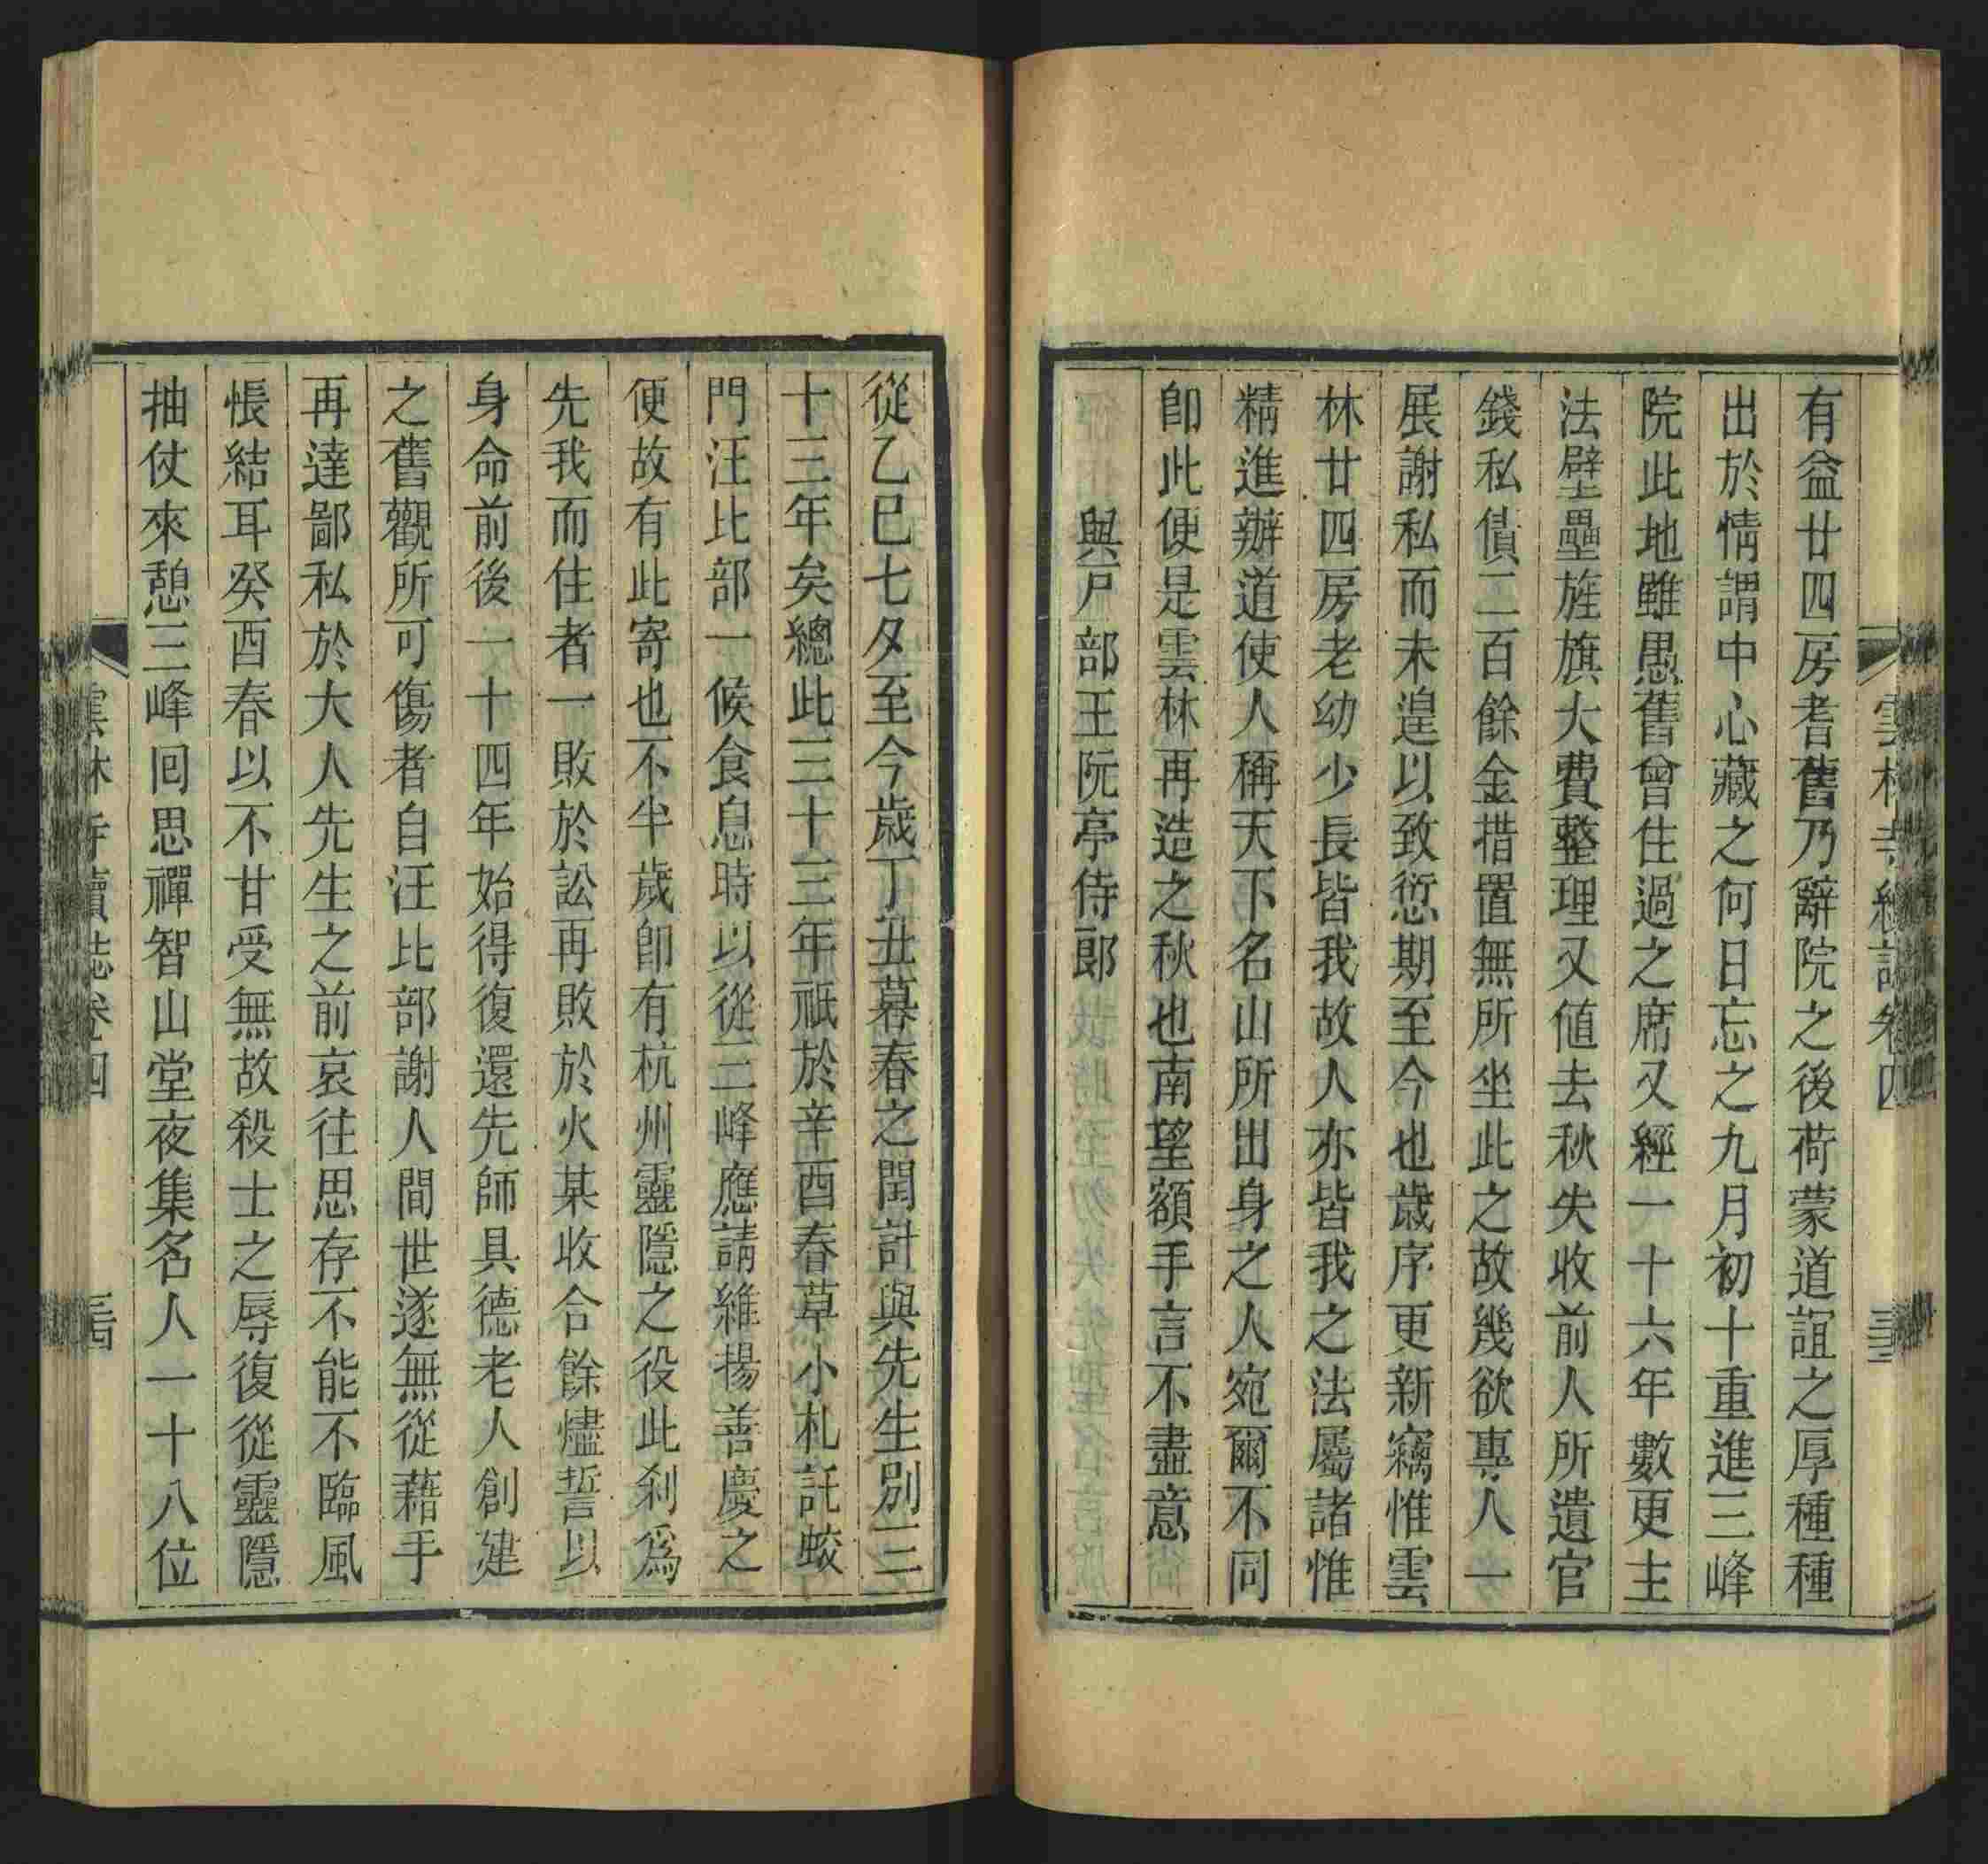 有益廿四房耆舊乃辭院之後荷蒙道誼之厚種種
出於情謂中心藏之何日忘之九月初十重進三峰
院此地雖愚舊曾住過之席又經一十六年數更主
法壁壘旌旗大費整理又值去秋失收前人所遺官
錢私債二百餘金措置無所坐此之故幾欲專人一
展謝私而未遑以致愆期至今也歲序更新竊惟雲
林廿四房老幼少長皆我故人亦皆我之法屬諸惟
精進辦道使人稱天下名山所出身之人宛爾不同
卽此便是雲林再造之秋也南望額手言不盡意
與戸部王阮亭侍郞
從乙巳七夕至今歲丁丑暮春之閏計與先生別三
十三年矣總此三十三年祇於辛酉春草小札託蛟
門汪比部一候食息時以從二峰應請維揚善慶之
便故有此寄也不半歲卽有杭州靈隱之役此刹爲
先我而住者一敗於訟再敗於火某收合餘燼誓以
身命前後一十四年始得復還先師具德老人創建
之舊觀所可傷者自汪比部謝人間世遂無從藉手
再達鄙私於大人先生之前哀往思存不能不臨風
悵結耳癸酉春以不甘受無故殺士之辱復從靈隱
抽仗來憩三峰回思禪智山堂夜集名人一十八位
雲林寺續誌卷四